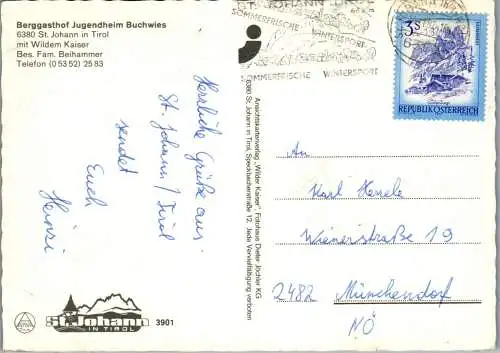 Berggasthof Jugendheim Buchwies
6380 St. Johann in Tirol
mit Wildem Kaiser
Bes. Fam. Beihammer
Telefon (0 53 52) 25 83
Herzliche Grüße aus
St. Johann / Tirol
sendet
Euch
Heinzi
St. Johann
IN TIROL
3901
Ansichtskartenverlag „Wilder Kaiser“, Fotohaus Dieter Jöchler KG
6380 St. Johann in Tirol, Speckbacherstraße 12. Jede Vervielfältigung verboten
ST. JOHANN
SOMMERFRISCHE WINTERSPORT
SOMMERFRISCHE WINTERSPORT
3S
REPUBLIK ÖSTERREICH
An
Karl
Wienerstraße 19
2482 Münchendorf
NÖ